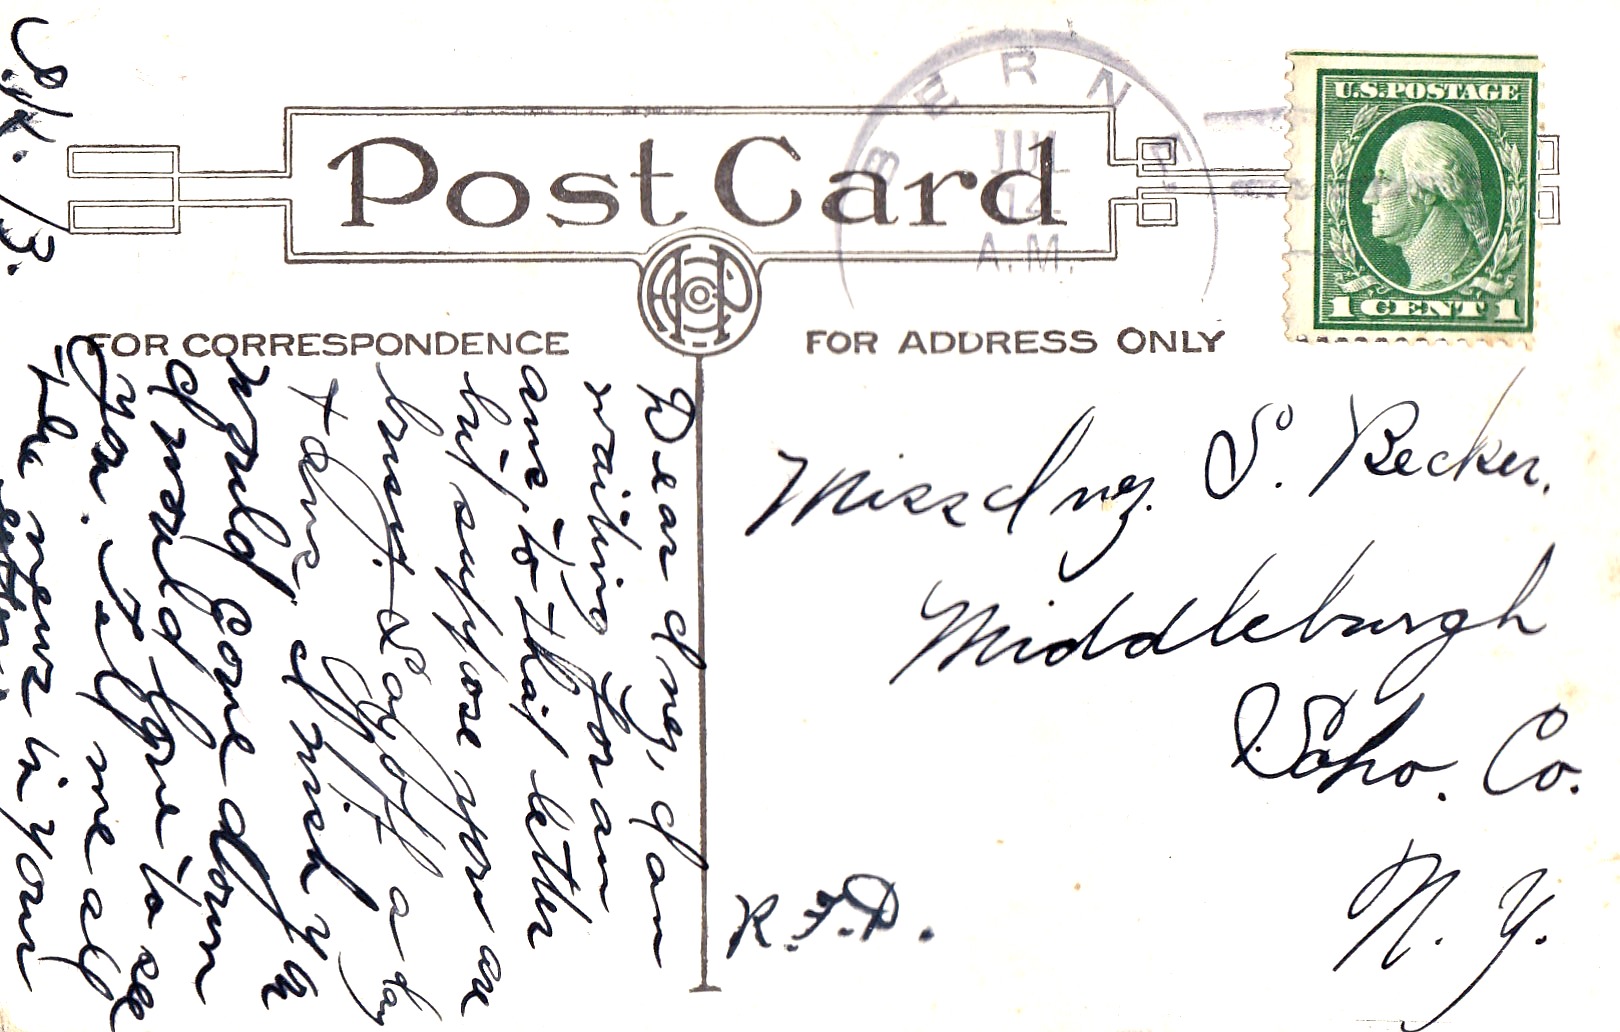 Post Card
BERNE
JUL
14
A.M.
U.S. POSTAGE
1 CENT 1
FOR CORRESPONDENCE
FOR ADDRESS ONLY
Dear Inez, I am
waiting for an
ans. to that letter
but suppose you are
busy. Lay off a day
+ ans. I wish you
would come down
I would love to see
you. Tell me all
the news in your
letter
Miss Inez. S. Becker.
Middleburgh
Scho. Co.
N. Y.
R.F.D.